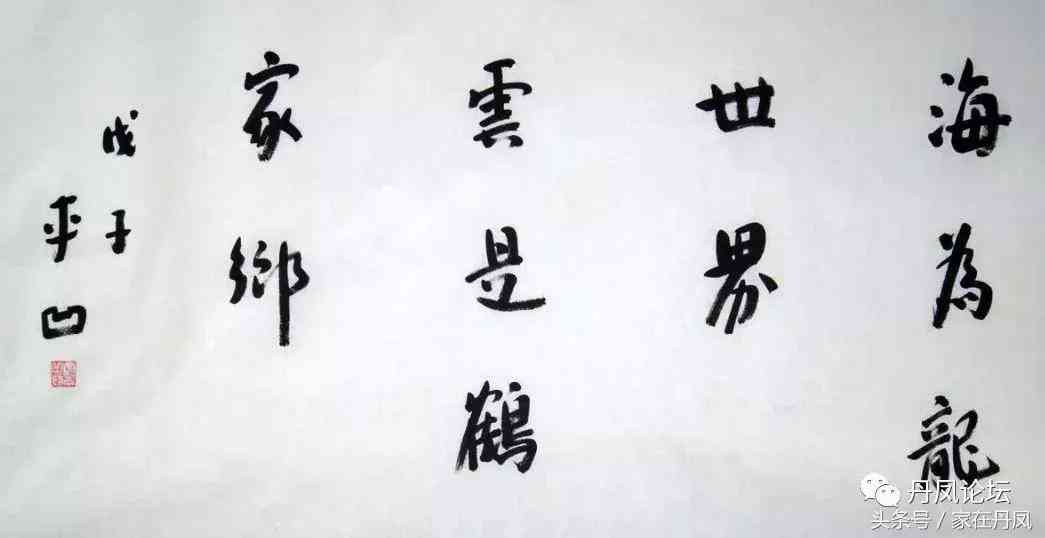 海為龍
世界
雲是鶴
家鄉
戊子
平凹
丹凤论坛
头条号/家在丹凤